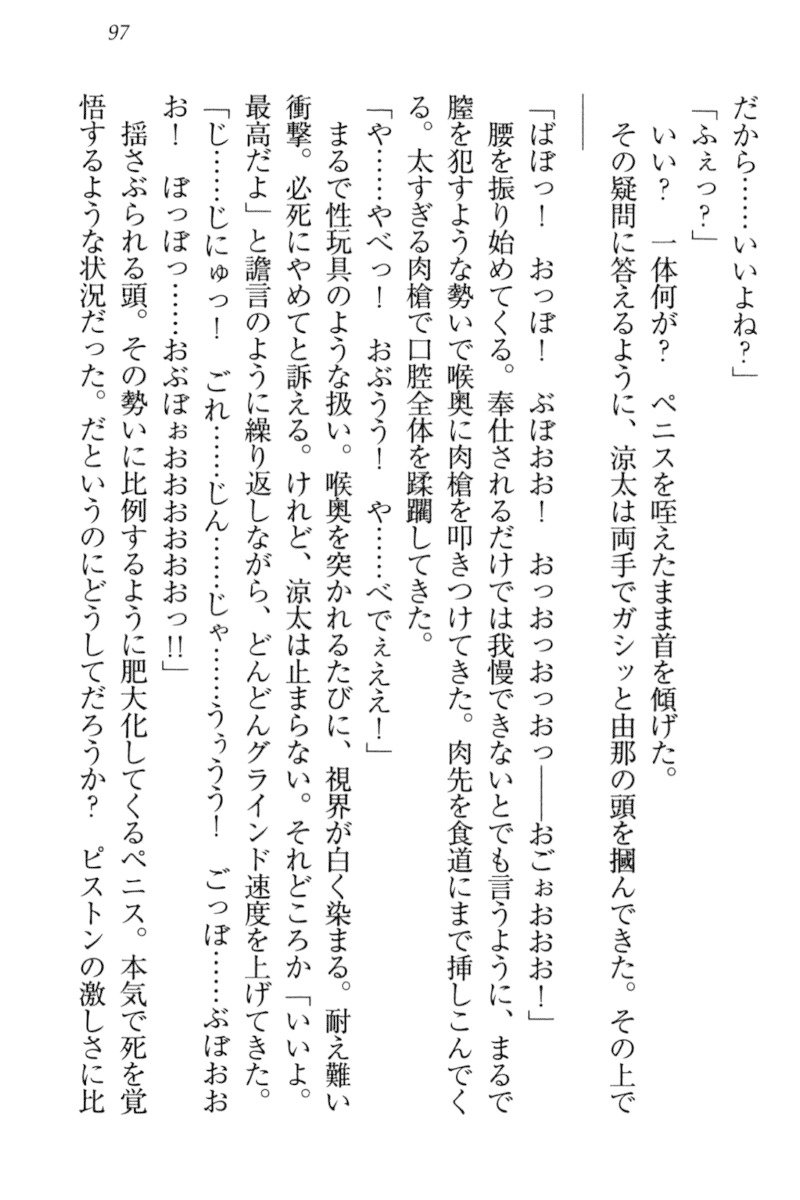 97
だから……いいよね？」
「ふぇっ？」
いい？　一体何が？　ペニスを咥えたまま首を傾げた。
その疑問に答えるように、涼太は両手でガシッと由那の頭を摑んできた。その上で
――
「ばぼっ！　おっぼ！　ぶぼおお！　おっおっおっおっ――おごぉおおお！」
腰を振り始めてくる。奉仕されるだけでは我慢できないとでも言うように、まるで
膣を犯すような勢いで喉奥に肉槍を叩きつけてきた。肉先を食道にまで挿しこんでく
る。太すぎる肉槍で口腔全体を蹂躙してきた。
「や……やべっ！　おぶうう！　や……べでぇええ！」
まるで性玩具のような扱い。喉奥を突かれるたびに、視界が白く染まる。耐え難い
衝撃。必死にやめてと訴える。けれど、涼太は止まらない。それどころか「いいよ。
最高だよ」と譫言のように繰り返しながら、どんどんグラインド速度を上げてきた。
「じ……じにゅっ！　ごれ……じん……じゃ……うぅうう！　ごっぼ……ぶぼおお
お！　ぼっぼっ……おぶぼぉおおおおおおっ!!」
揺さぶられる頭。その勢いに比例するように肥大化してくるペニス。本気で死を覚
悟するような状況だった。だというのにどうしてだろうか？　ピストンの激しさに比